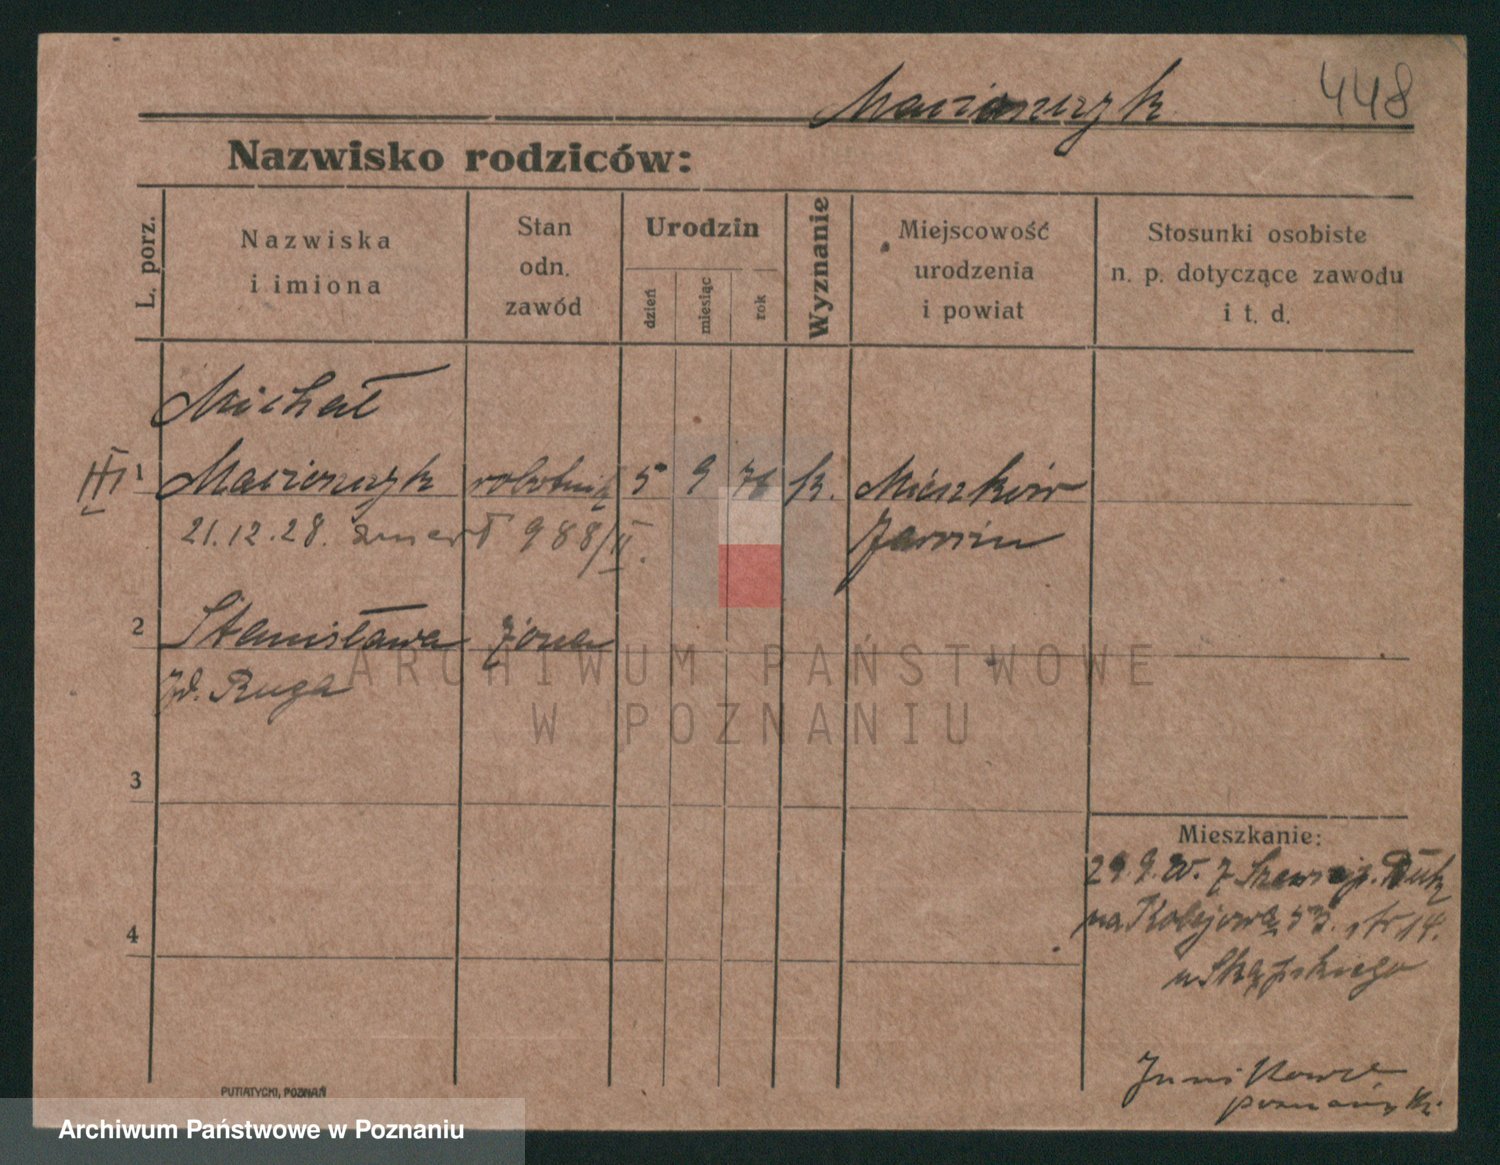 Macionczyk 448
Nazwisko rodziców:
L. porz.
Nazwiska
i imiona
Stan
odn.
zawód
Urodzin
dzień
miesiąc
rok
Wyznanie
Miejscowość
urodzenia
i powiat
Stosunki osobiste
n. p. dotyczące zawodu
i t. d.
Michał
III 1 Macionczyk robotnik 5 9 76 k. Mieszków
21.12.28. zmarł 988/II. Jarocin
2 Stanisława żona
Zd. Ruga
3
4
Mieszkanie:
29.9. z
na Kolejową 53. 14.
u Skąpskiego
poznański
ARCHIWUM PAŃSTWOWE
W POZNANIU
PUTIATYCKI, POZNAŃ
Archiwum Państwowe w Poznaniu